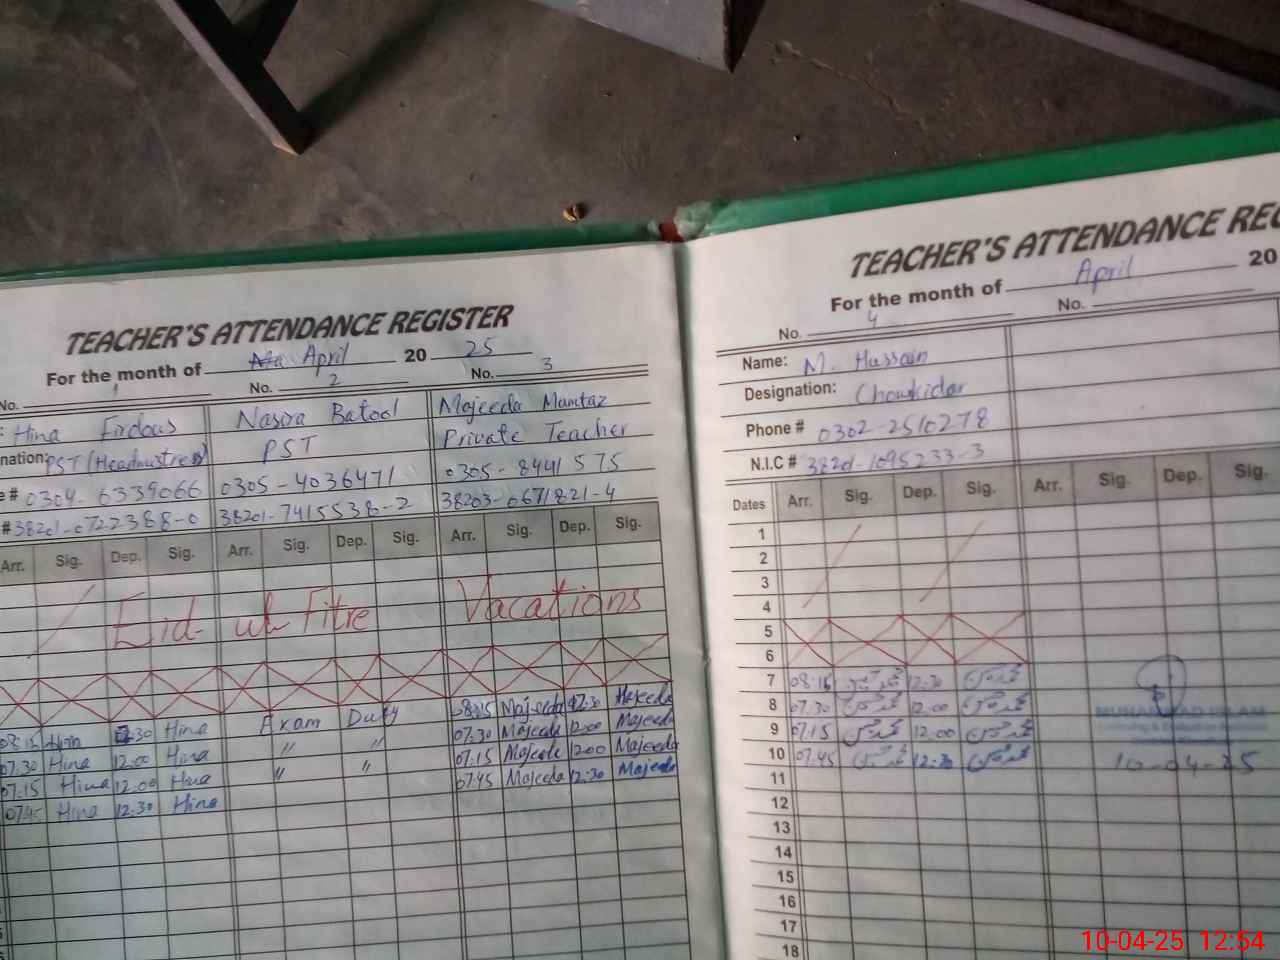 TEACHER'S ATTENDANCE REGISTER
For the month of April 20 25
No. 1 No. 2 No. 3
: Hina Firdous Nasira Batool Majeeda Mamtaz
nation: PST (Headmistress) PST Private Teacher
e# 0304-6339066 0305-4036471 0305-8441575
# 38201-0722388-0 38201-7415538-2 38203-0671821-4
Arr. Sig. Dep. Sig. Arr. Sig. Dep. Sig. Arr. Sig. Dep. Sig.
Eid-ul Fitre Vacations
08:15 Hina 12:30 Hina Exam Duty 08:15 Majeeda 12:30 Majeeda
07:30 Hina 12:00 Hina " " 07:30 Majeeda 12:00 Majeeda
07:15 Hina 12:00 Hina " " 07:15 Majeeda 12:00 Majeeda
07:45 Hina 12:30 Hina 07:45 Majeeda 12:30 Majeeda
TEACHER'S ATTENDANCE REG
For the month of April 20
No. 4 No.
Name: M. Hussain
Designation: Chowkidar
Phone # 0302-2510278
N.I.C # 38201-1095233-3
Dates Arr. Sig. Dep. Sig. Arr. Sig. Dep. Sig.
1
2
3
4
5
6
7 08:15 12:30
8 07:30 12:00
9 07:15 12:00
10 07:45 12:30
11
12
13
14
15
16
17
18
MUHAMMAD
10-04-25
10-04-25 12:54